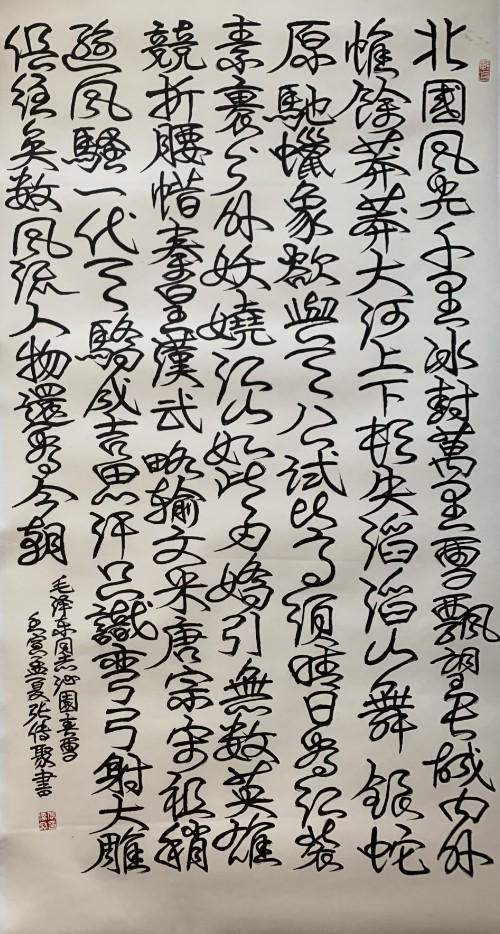 北國風光千里冰封萬里雪飄望長城内外
惟餘莽莽大河上下頓失滔滔山舞銀蛇
原馳蠟象欲與天公試比高須晴日看紅裝
素裹分外妖嬈江山如此多嬌引無數英雄
競折腰惜秦皇漢武略輸文采唐宗宋祖稍
遜風騷一代天驕成吉思汗只識彎弓射大雕
俱往矣數風流人物還看今朝
毛澤东同志沁園春雪
壬寅孟夏张传聚書